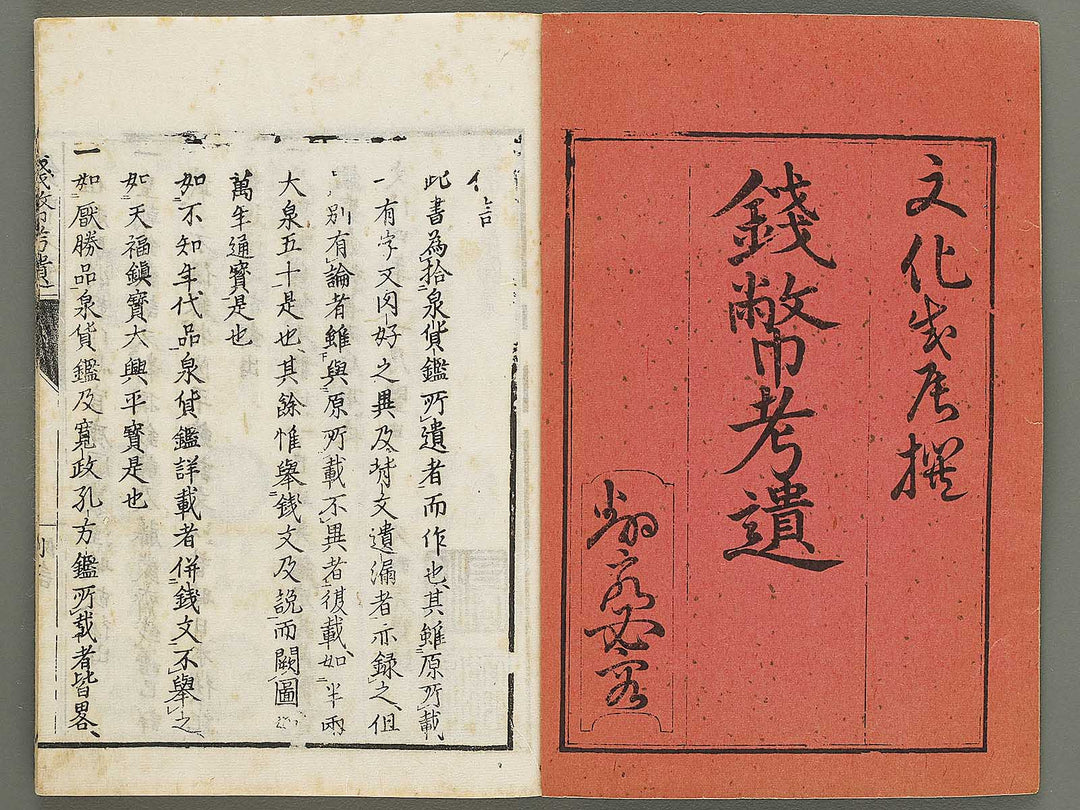 文化戊辰撰
錢幣考遺
此書為拾泉貨鑑所遺者而作也其雖原所載
一有字文肉好之異及背文遺漏者亦録之但
別有論者雖與原所載不異者復載如半兩
大泉五十是也其餘惟舉銭文及説而闕圖
萬年通寳是也
如不知年代品泉貨鑑詳載者併銭文不舉之
如天福鎮寳大興平寳是也
一如厭勝品泉貨鑑及寛政孔方鑑所載者皆畧
錢幣考遺